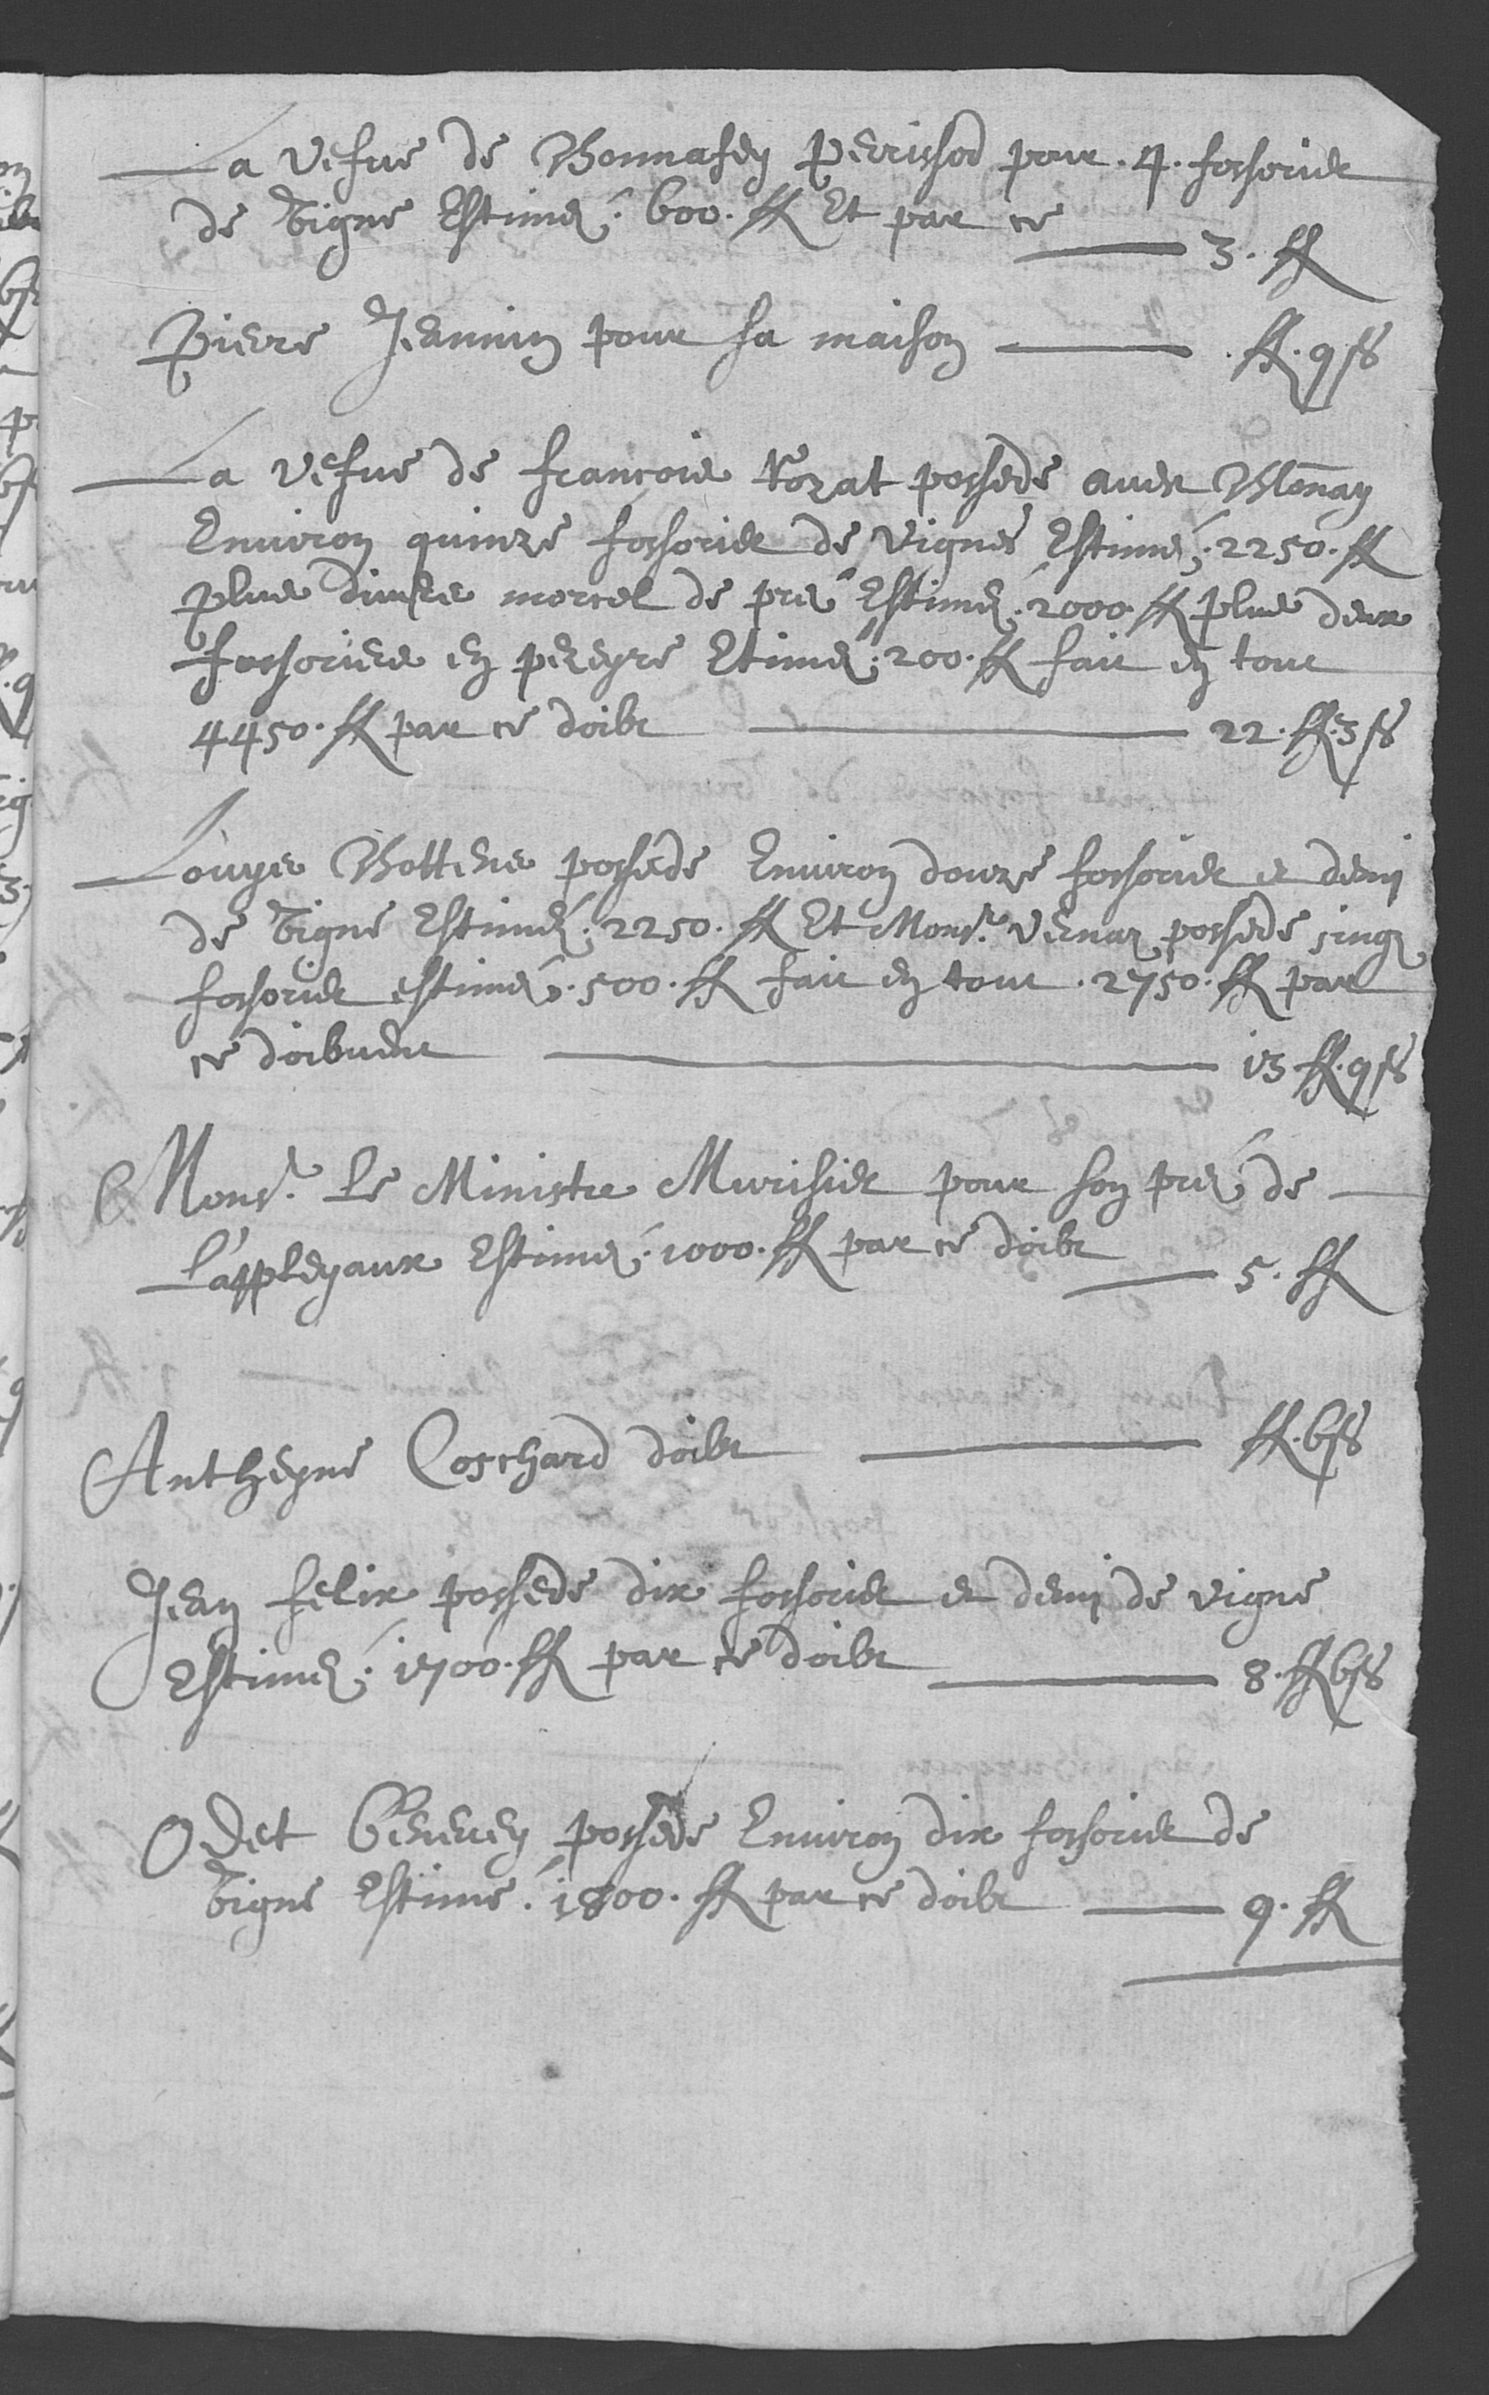 La vefue de Bonnafey perrissod pour .4. fossorier
de vigne Estimé. 600. ff Et par ce 3. ff
Pierre Jeannin pour sa maison ff. 9 ss
La vefue de françois Rozat possede auec Monay
Enuiron quinze fossorier de vignes Estimé. 2250. ff
plus diuers morcel de pré Estimé. 2000 ff plus deux
fossoriers en pereyre Etimé. 200. ff fait en tout
4450. ff par ce doibt 22. ff. 3 ss
Louys Bottens possede Enuiron douze fossorier et demi
de vigne Estimé. 2250. ff Et Monsr. vernaz possede sinq
fossorier estimé. 500. ff fait en tout . 2750. ff par
ce doibuent 13 ff. 9 ss
Monsr. Le Ministre Murisier pour son pré de
L'appleyaux Estimé. 1000. ff par ce doibt 5. ff
Antheyne Coschard doibt ff. 6 ss
Jean felix possede dix fossorier et demi de vigne
Estimé. 1700. ff par ce doibt 8. ff 6 ss
Odet Geneuey possede Enuiron dix fossorier de
vigne Estimé. 1800. ff par ce doibt 9. ff